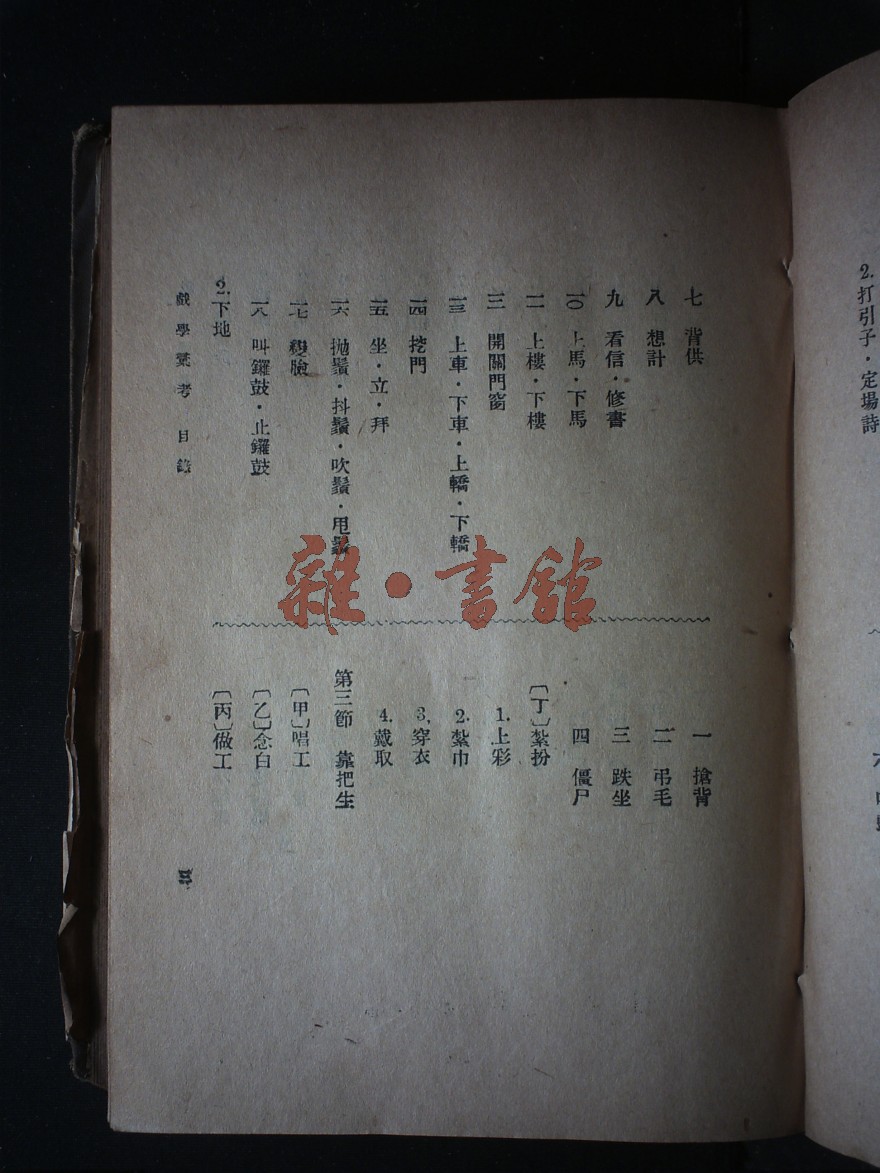 七　背供
八　想計
九　看信・修書
一〇　上馬・下馬
一一　上樓・下樓
一二　開關門窗
一三　上車・下車・上轎・下轎
一四　挖門
一五　坐・立・拜
一六　拋鬚・抖鬚・吹鬚・甩鬚
一七　變臉
一八　叫鑼鼓・止鑼鼓
2.下地
一　搶背
二　弔毛
三　跌坐
四　僵尸
〔丁〕紮扮
1.上彩
2.紮巾
3.穿衣
4.戴取
第三節　靠把生
〔甲〕唱工
〔乙〕念白
〔丙〕做工
戲學彙考　目錄
2.打引子・定場詩
雜・書館